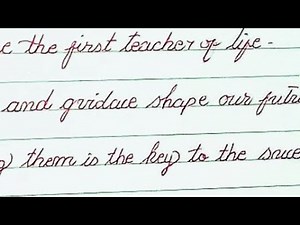 e the first teacher of life -
and gvidace shape our futu
g) them is the key) to the suce